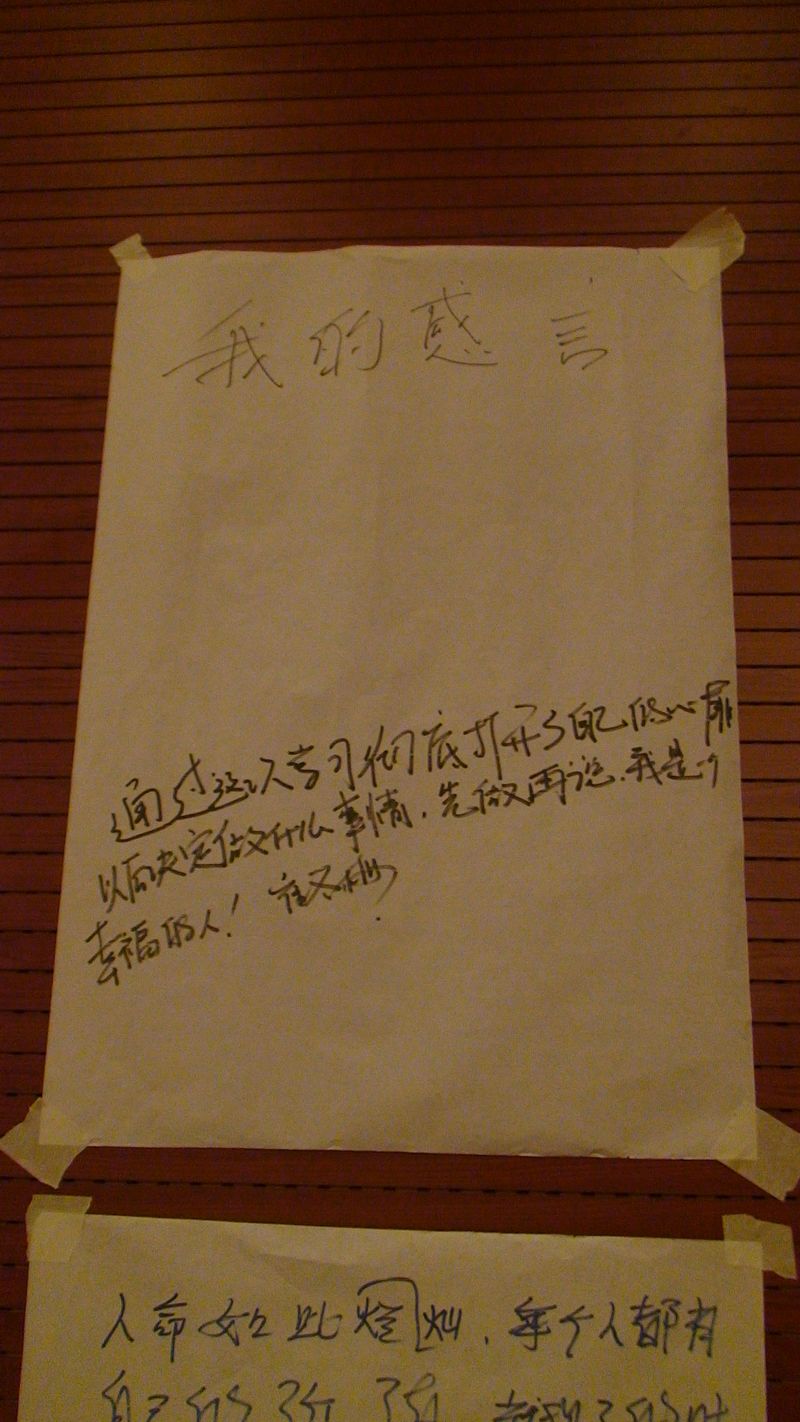 我的感言
通过这次学习彻底打开了自己的心扉
以后决定做什么事情，先做再说，我是一个
幸福的人！
人命如此灿，每个人都有
自己的